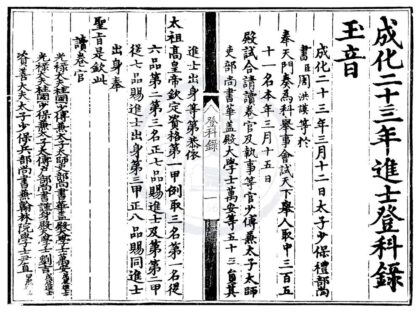 成化二十三年進士登科錄
玉音
成化二十三年三月十二日太子少保禮部尚
書臣周洪謨等於
奉天門奏為科舉事會試天下舉人取中三百五
十一名本年三月十五日
殿試合請讀卷官及執事等官少傅兼太子太師
吏部尚書華蓋殿大學士萬安等五十三員其
登科錄
一
進士出身等第恭依
太祖高皇帝欽定資格第一甲例取三名第一名從
六品第二第三名正七品賜進士及第第二甲
從七品賜進士出身第三甲正八品賜同進士
出身奉
聖旨是欽此
讀卷官
光祿大夫柱國少傅兼太子太師吏部尚書華蓋殿大學士萬安
光祿大夫柱國少保兼太子太傅戶部尚書謹身殿大學士劉吉
資善大夫太子少保兵部尚書兼翰林院學士尹直